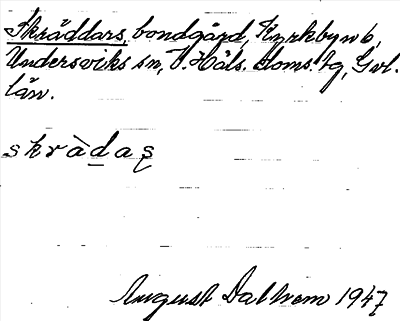 Skräddars, bondgård, Kyrkbyn 6,
Undersviks sn, V. Häls. doms. tg, Gvl.
län.
skràdaş
August Dalhem 1947